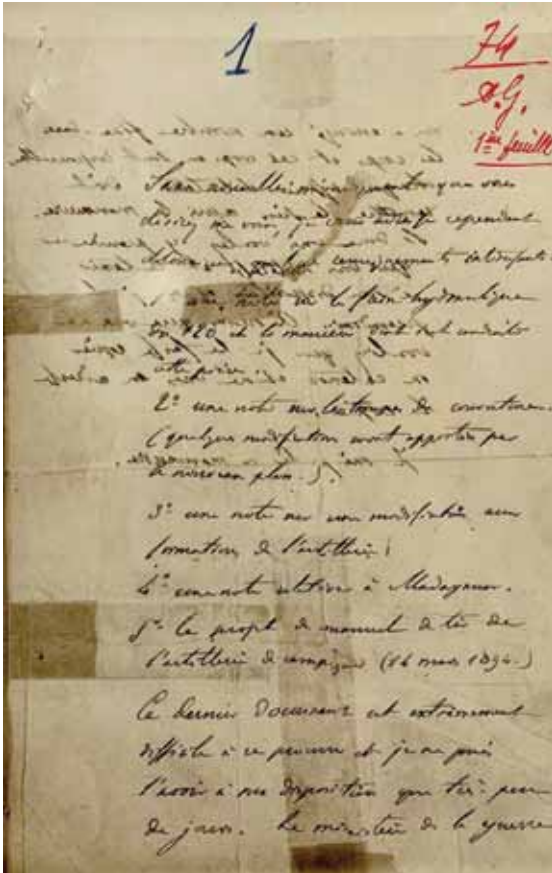 1
74
D.G.
1ère feuille
Sans nouvelles m'indiquant que vous
désirez me voir, je vous adresse cependant
Monsieur quelques renseignements intéressants.
1º une note sur le frein hydraulique
du 120 et la manière dont s'est conduite
cette pièce
2º une note sur les troupes de couverture.
(quelques modifications seront apportées par
le nouveau plan.)
3º une note sur une modification aux
formations de l'artillerie
4º une note relative à Madagascar.
5º le projet de manuel de tir de
l'artillerie de campagne (14 mars 1894.)
Ce dernier document est extrêmement
difficile à se procurer et je ne puis
l'avoir à ma disposition que très peu
de jours. Le ministère de la guerre